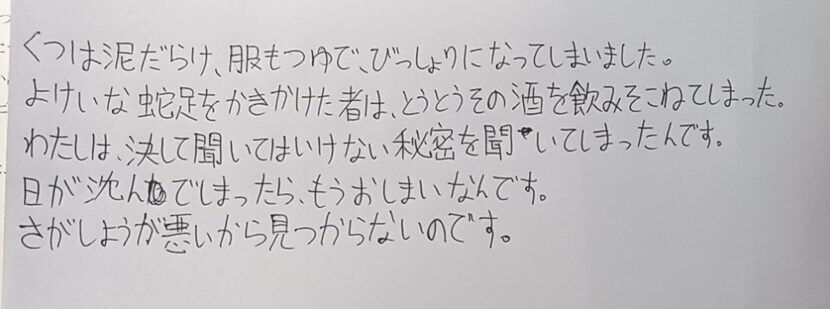 くつは泥だらけ、服もつゆで、びっしょりになってしまいました。
よけいな蛇足をかきかけた者は、とうとうその酒を飲みそこねてしまった。
わたしは、決して聞いてはいけない秘密を聞いてしまったんです。
日が沈んでしまったら、もうおしまいなんです。
さがしようが悪いから見つからないのです。